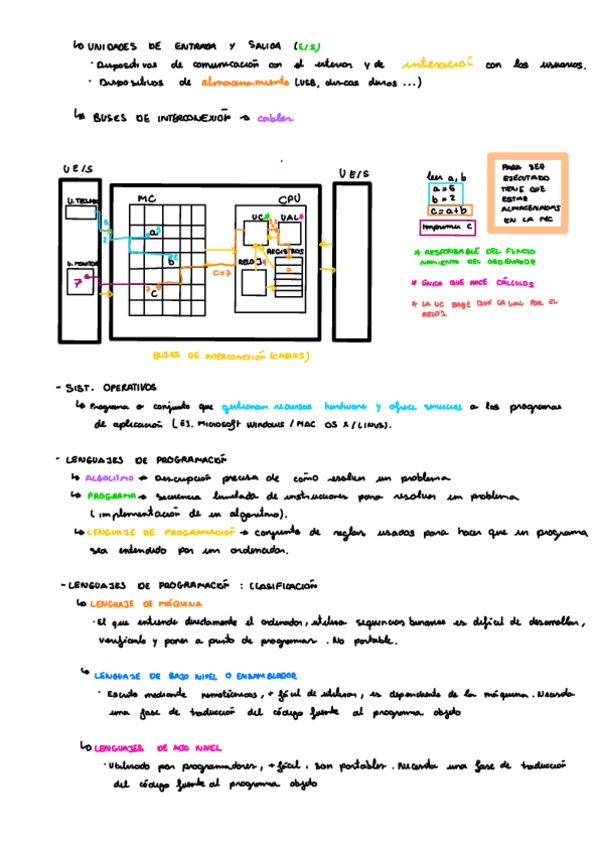 ↳ UNIDADES DE ENTRADA Y SALIDA (E/S)
· Dispositivos de comunicación con el exterior y de interacció con los usuarios.
· Dispositivos de almacenamiento (USB, discos duros ...)
↳ BUSES DE INTERCONEXIÓN → cables
U E/S
MC
CPU
U E/S
U. TECLADO
UC*
UAL*
a
b
c
REGISTROS
RELOJ
U. MONITOR
7
C=7
BUSES DE INTERCONEXIÓN (CABLES)
leer a, b
a = 5
b = 2
c = a+b
Imprimir C
PARA SER
EJECUTADO
TIENE QUE
ESTAR
ALMACENADAS
EN LA MC
* RESPONSABLE DEL FUNCIO
NAMIENTO DEL ORDENADOR
* ÚNICA QUE HACE CÁLCULOS
* LA UC SABE QUE LA UAL POR EL
RELOJ.
- SIST. OPERATIVOS
↳ Programa o conjunto que gestionan recursos hardware y ofrece servicios a los programas
de aplicación (EJ. Microsoft Windows / MAC OS X / LINUS).
- LENGUAJES DE PROGRAMACIÓN
↳ ALGORITMO → Descripción precisa de cómo resolver un problema
↳ PROGRAMA → secuencia limitada de instrucciones para resolver un problema
(implementación de un algoritmo).
↳ LENGUAJE DE PROGRAMACIÓN → conjunto de reglas usadas para hacer que un programa
sea entendido por un ordenador.
- LENGUAJES DE PROGRAMACIÓN : CLASIFICACIÓN
↳ LENGUAJE DE MÁQUINA
· El que entiende directamente el ordenador, utiliza sequencias binarias es difícil de desarrollar,
verificarlo y poner a punto de programar. No portable.
↳ LENGUAJE DE BAJO NIVEL O ENSAMBLADOR
· Escrito mediante nemotécnicas, + fácil de utilizar, es dependiente de la máquina. Necesita
una fase de traducción del código fuente al programa objeto
↳ LENGUAJES DE ALTO NIVEL
· Utilizado por programadores, + fácil, son portables. Necesita una fase de traducción
del código fuente al programa objeto